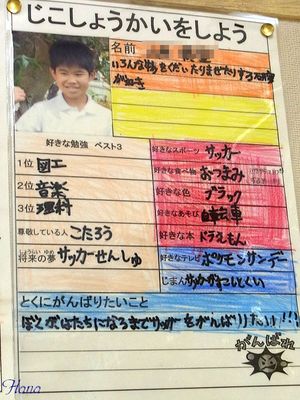 じこしょうかいをしよう
名前
いろんな物をくだいたりまぜたりする研究
が好き
好きな勉強 ベスト3
1位 図工
2位 音楽
3位 理科
尊敬している人 こたろう
しょうらい ゆめ
将来の夢 サッカーせんしゅ
好きなスポーツ サッカー
好きな食べ物 おつまみ
好きな色 ブラック
好きなあそび 自転車
好きな本 ドラえもん
好きなテレビ ポケモンサンデー
じまん サッカーがすこしとくい
とくにがんばりたいこと
ぼくがはたちになるまでサッカーをがんばりたい!!!
がんばれ
Hana